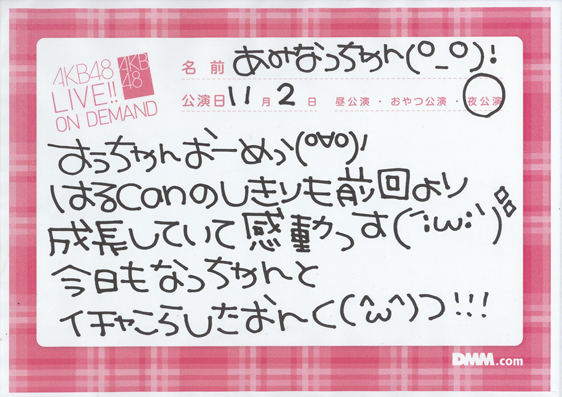 AKB48
LIVE!!
ON DEMAND
AKB
48
名前 あみなっちゃん(°_°)!
公演日 11月2日 昼公演・おやつ公演・夜公演
すうちゃんおーめっ(°∀°)!
はるcanのしきりも前回より
成長していて感動っす(´;ω;`)
今日もなっちゃんと
イチャこらしたおんく(^ω^)つ!!!
DMM.com